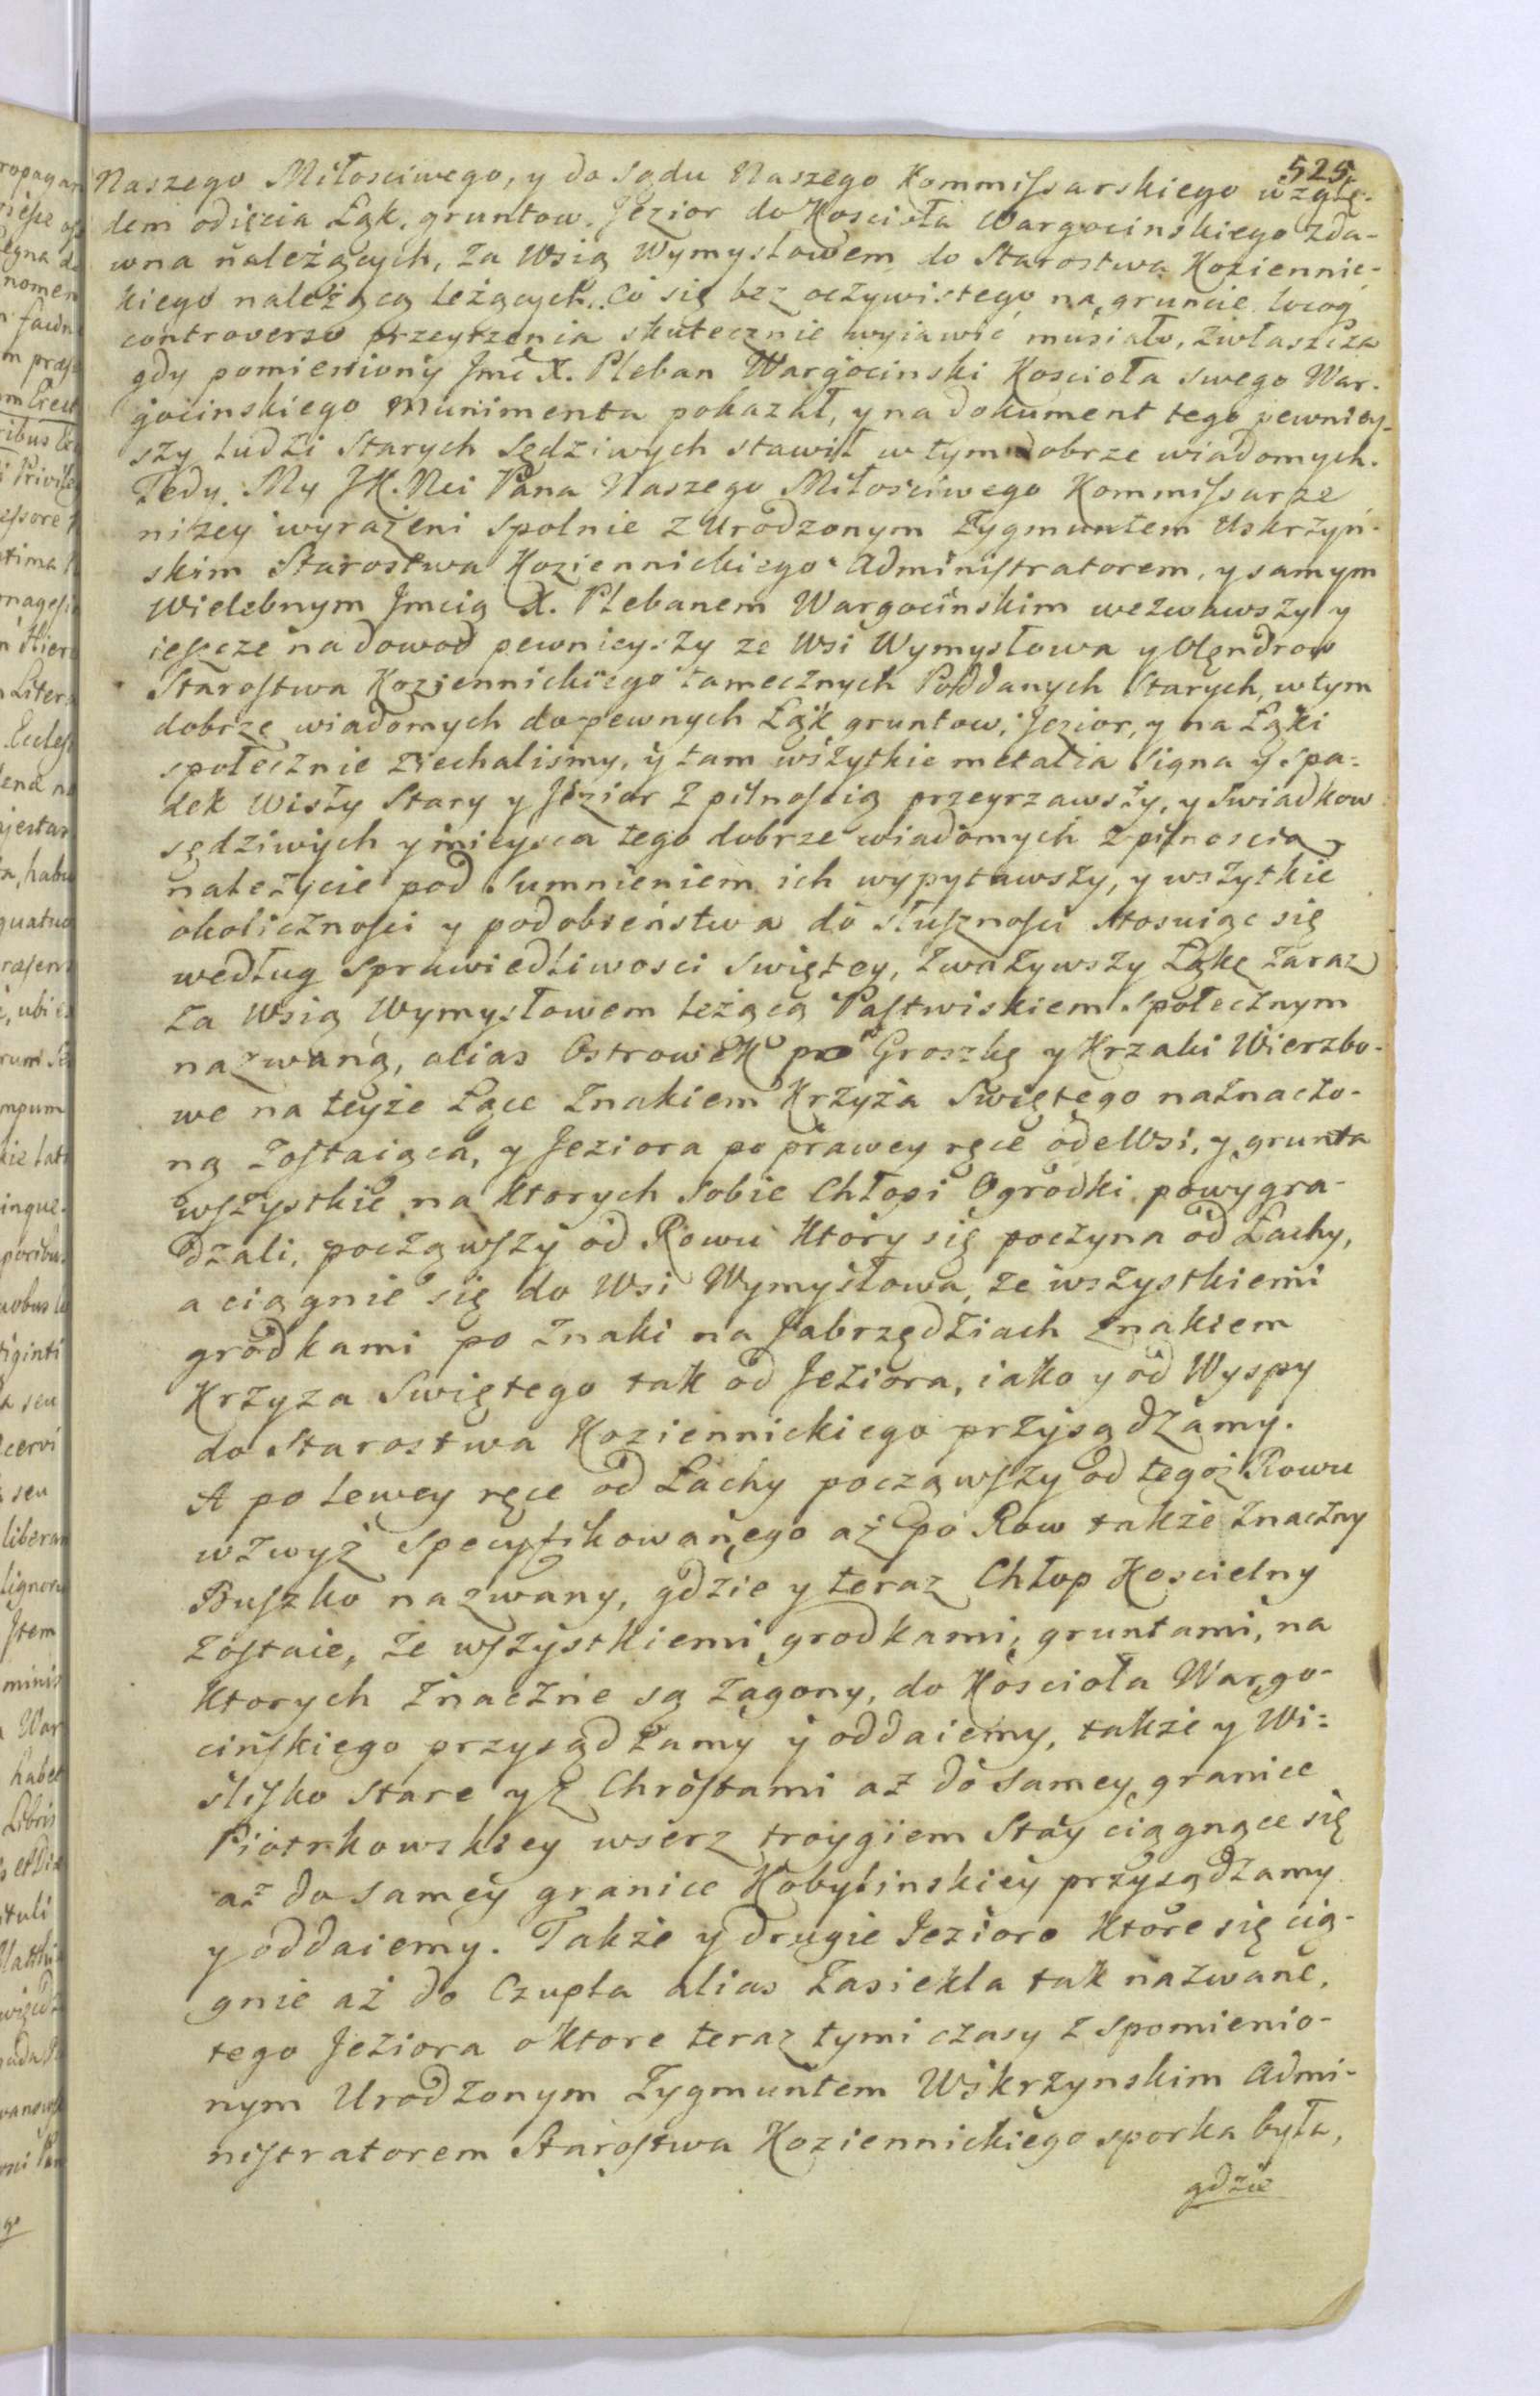 525.
Naszego Miłosciwego, y do Sądu Naszego Kommissarskiego wzglę-
dem odięcia Łąk, gruntow, Jezior do Koscioła Wargocinskiego zda-
wna należących, za Wsią Wymysłowem do Starostwa Koziennic-
kiego należącą leżących. Co się bez oczywistego na gruncie loco
controverso przeyrzenia skutecznie wyiawić musiało, zwłaszcza
gdy pomieniony Jmć X. Pleban Wargocinski Koscioła swego War-
gocinskiego munimenta pokazał, y na dokument tego pewniey-
szy ludzi Starych Sędziwych stawił w tym dobrze wiadomych.
Tedy My JK. Mci Pana Naszego Miłosciwego Kommissarze
niżey wyrażeni spolnie z Urodzonym Zygmuntem Uskrzyń-
skim Starostwa Koziennickiego Administratorem, y samym
Wielebnym Jmcią X. Plebanem Wargocinskim wezwawszy y
ieszcze na dowod pewnieyszy ze Wsi Wymysłowa y Olęndrow
Starostwa Koziennickiego tamecznych Poddanych Starych, w tym
dobrze wiadomych do pewnych Łąk gruntow, Jezior, y na Łąki
społecznie ziechalismy, y tam wszytkie metalia Signa y spa-
dek Wisły Stary y Jezior z pilnoscią przeyrzawszy, y Swiadkow
sędziwych y mieysca tego dobrze wiadomych z pilnoscią
należycie pod Sumnieniem ich wypytawszy, y wszytkie
okolicznosci y podobieństwa do słusznosci stosuiąc się
według Sprawiedliwosci Swiętey, zważywszy Łąkę zaraz
za Wsią Wymysłowem leżącą Pastwiskiem Społecznym
nazwaną, alias Ostrowek po Groszkę y Krzaki Wierzbo-
we na teyże Łące Znakiem Krzyża Swiętego naznaczo-
ną zostaiąca, y Jeziora po prawey ręce ode Wsi, y grunta
wszystkie na ktorych sobie Chłopi Ogrodki powygra-
dzali, począwszy od Rowu Ktory się poczyna od Łachy,
a ciągnie się do Wsi Wymysłowa, ze wszystkiemi
grodkami po znaki na Jabrzędziach znakiem
Krzyza Swiętego tak od Jeziora, iako y od Wyspy
do Starostwa Koziennickiego przysądzamy.
A po lewey ręce od Łachy począwszy od tegoż Rowu
wzwyż specyfikowanego aż po Row także znaczny
Buszko nazwany, gdzie y teraz Chłop Koscielny
zostaie, ze wszystkiemi grodkami, gruntami, na
Ktorych znacznie są zagony, do Koscioła Wargo-
cińskiego przysądzamy y oddaiemy, także y Wi-
ślisko Stare y z Chrostami aż do samey granice
Piotrkowskiey wserz troygiem Stay ciągnące się
aż do samey granice Kobylinskiey przysądzamy
y oddaiemy. Także y drugie Jezioro Ktore się cią-
gnie aż do Czupla alias Zasiekla tak nazwane,
tego Jeziora o Ktore teraz tymi czasy z spomienio-
nym Urodzonym Zygmuntem Wskrzynskim Admi-
nistratorem Starostwa Koziennickiego sporka była,
gdzie